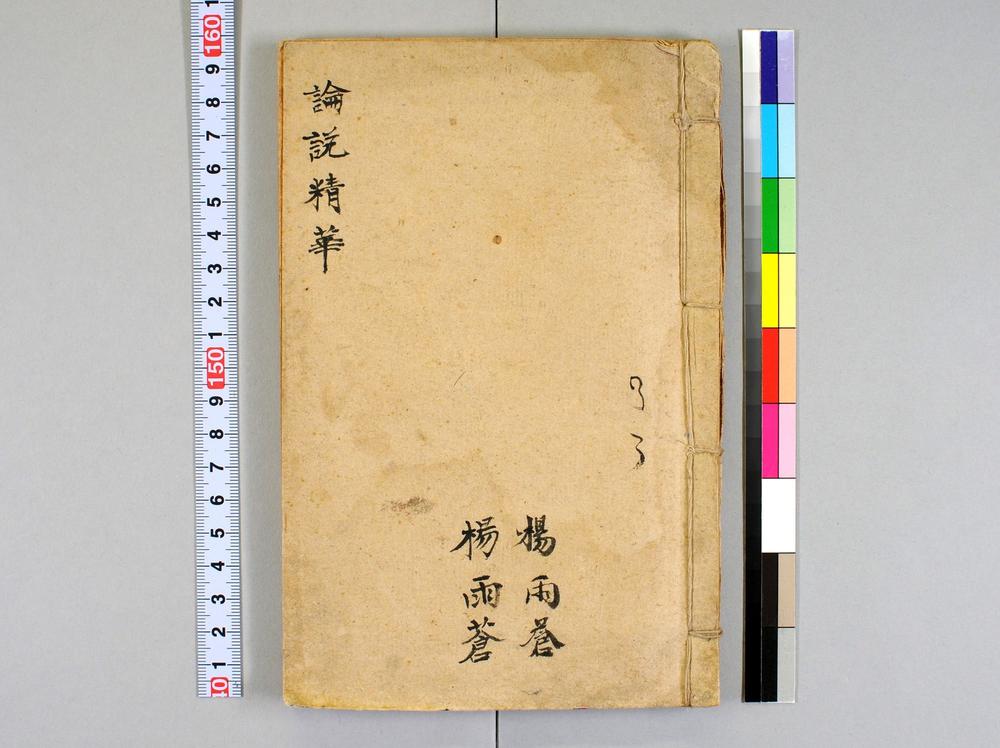 楊雨蒼
楊雨蒼
論説精華
160
9
8
7
6
5
4
3
2
1
150
9
8
7
6
5
4
3
2
1